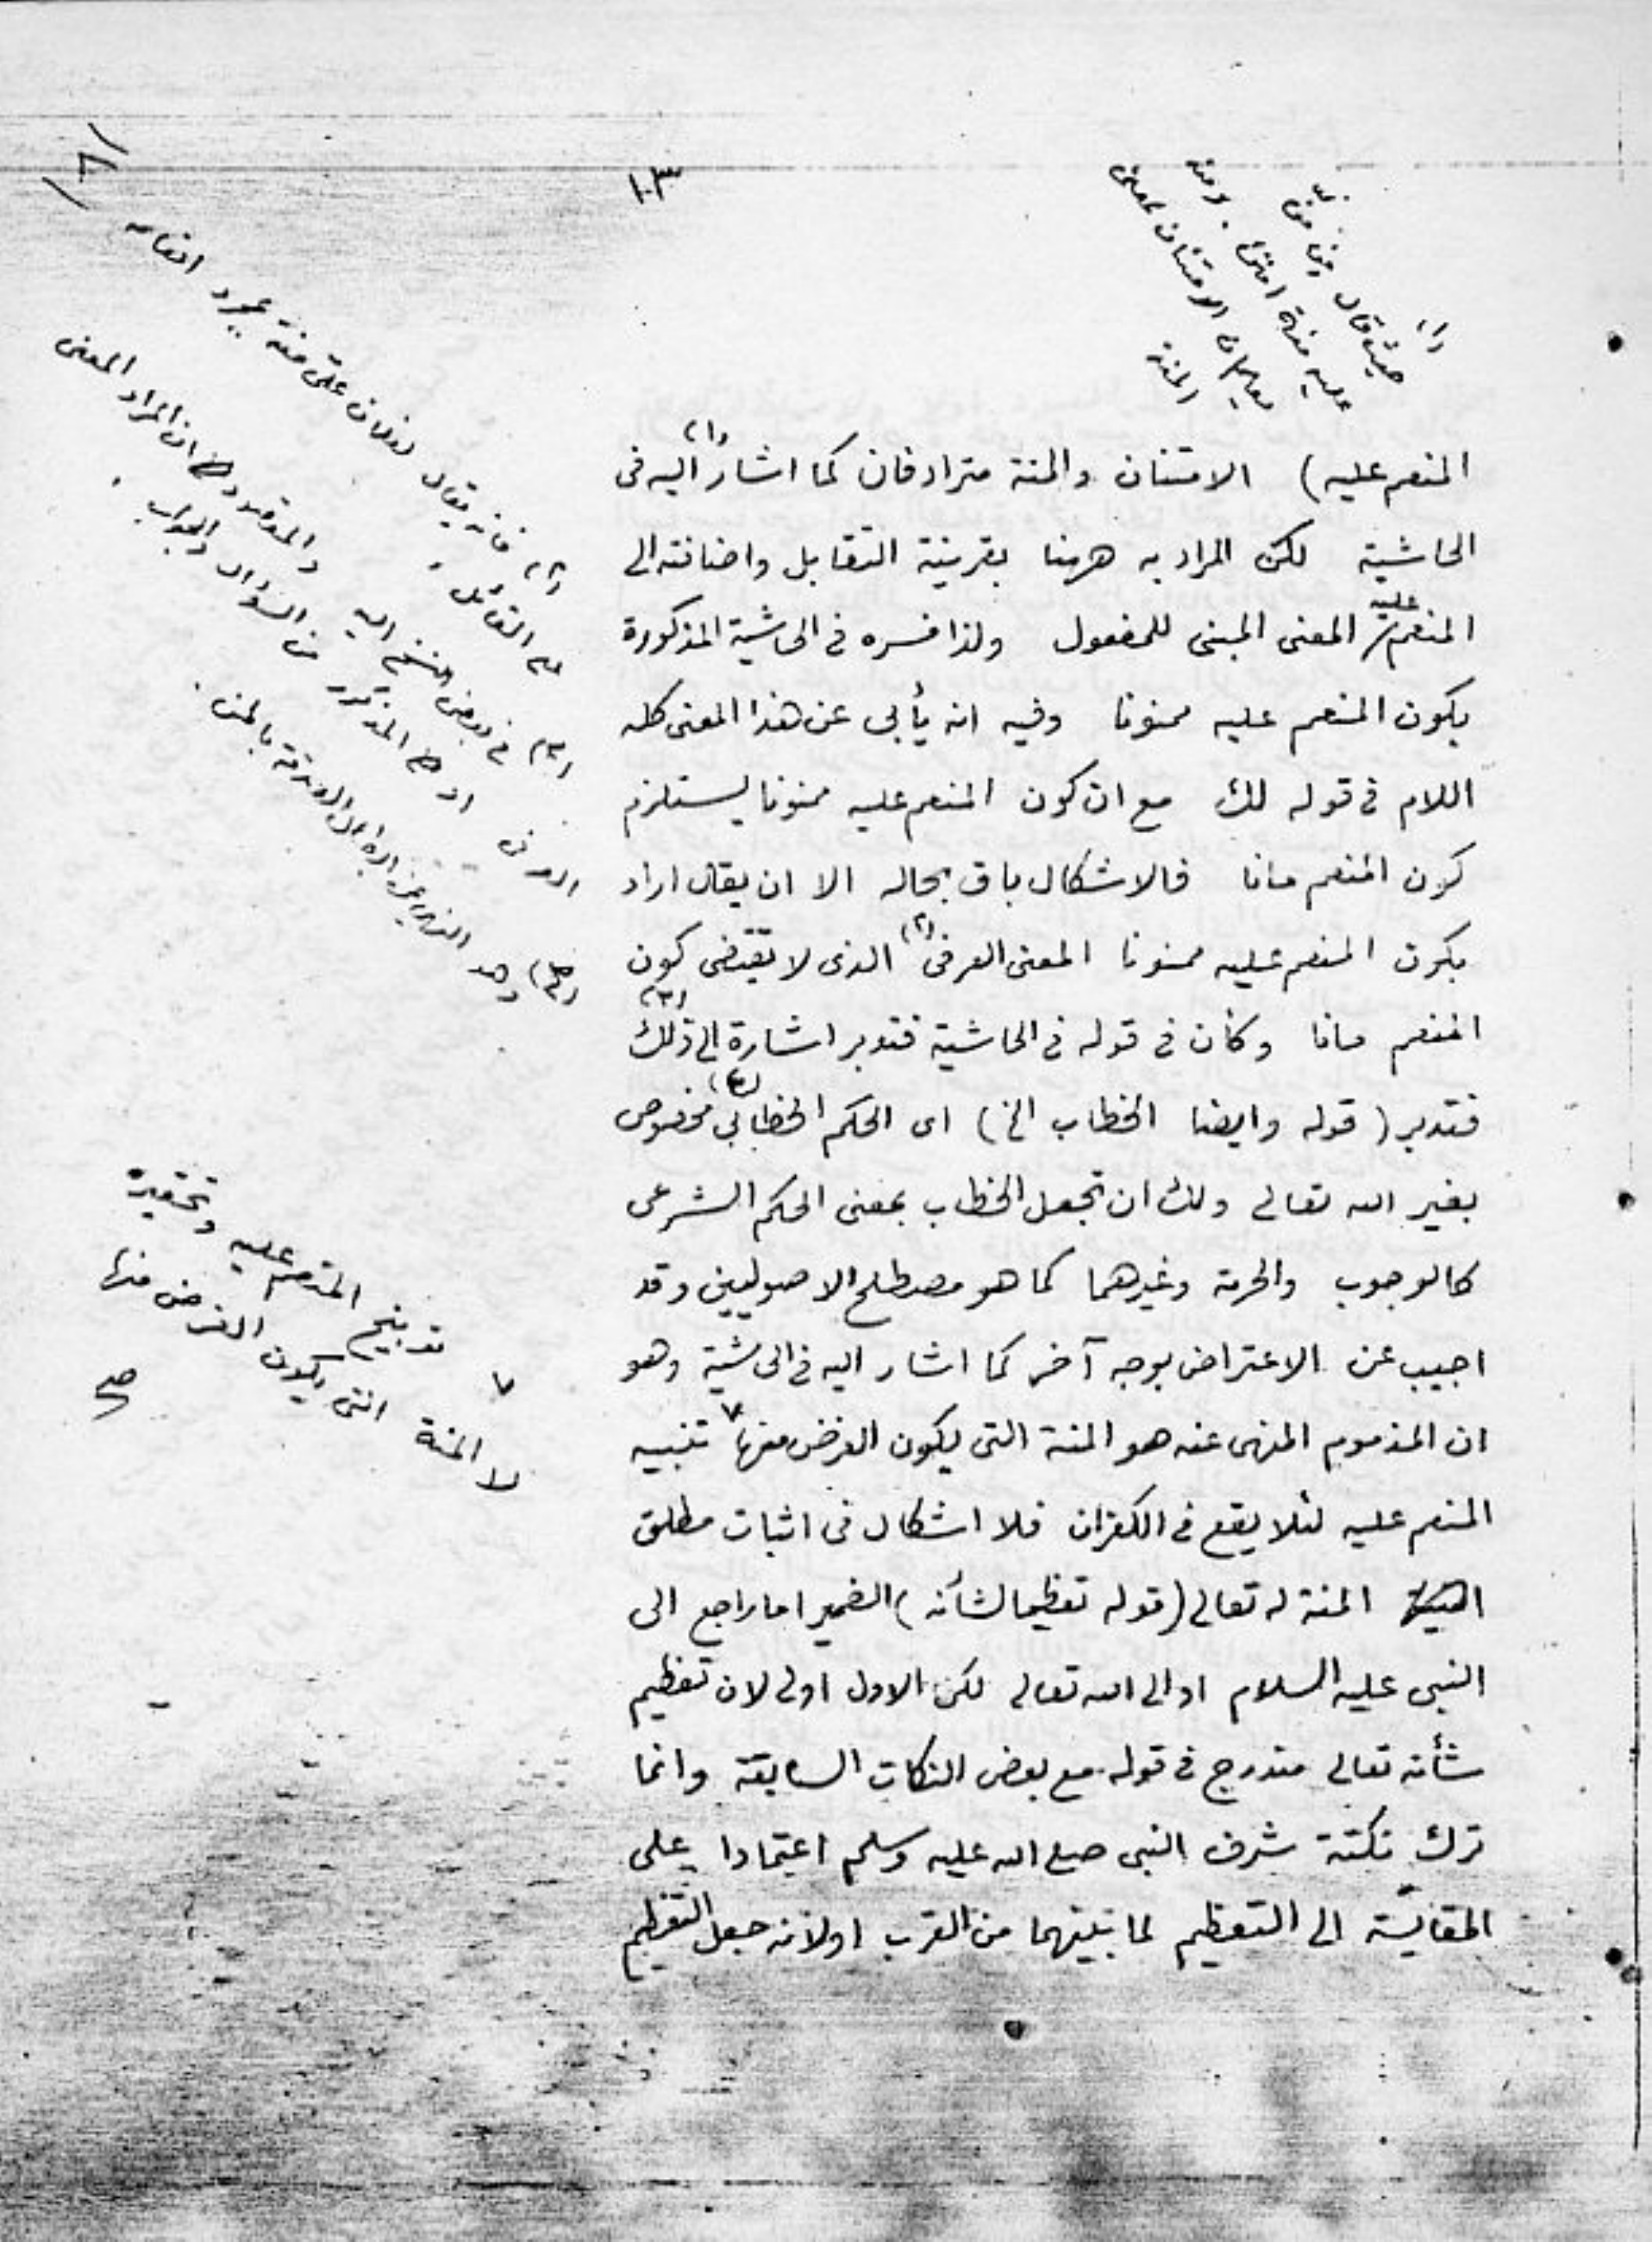 ١٠٣
(١)
حيث قال من من
عليه منة امتن . ومنه
الامتنان بمعنى
المنة
المنعم عليه) الامتنان والمنة مترادفان كما اشار(١) اليه فى
الحاشية لكن المراد به ههنا بقرينة التقابل واضافته الى
المنعم عليه المعنى المبنى للمفعول ولذا فسره فى الحاشية المذكورة
بكون المنعم عليه ممنونا وفيه انه يأبى عن هذا المعنى كله
اللام فى قوله لك مع ان كون المنعم عليه ممنونا يستلزم
كون المنعم مانا فالاشكال باق بحاله الا ان يقال اراد
بكون المنعم عليه ممنونا المعنى العرفى(٢) الذى لا يقتضى كون
المنعم مانا وكأن فى قوله فى الحاشية فتدبر اشارة الى ذلك(٣)
فتدبر (قوله وايضا الخطاب الخ) اى الحكم الخطابى(٤) مخصوص
بغير الله تعالى ولك ان تجعل الخطاب بمعنى الحكم الشرعى
كالوجوب والحرمة وغيرهما كما هو مصطلح الاصوليين وقد
اجيب عن الاعتراض بوجه آخر كما اشار اليه فى الحاشية وهو
ان المذموم المنهى عنه هو المنة التى يكون الغرض منها ٧ تنبيه
المنعم عليه لئلا يقع فى الكفران فلا اشكال فى اثبات مطلق
المنة له تعالى (قوله تعظيما لشأنه) الضمير اما راجع الى
النبى عليه السلام او الى الله تعالى لكن الاول اولى لان تعظيم
شأنه تعالى مندرج فى قوله مع بعض النكات السابقة وانما
ترك نكتة شرف النبى صلى الله عليه وسلم اعتمادا على
المقايسة الى التعظيم لما بينهما من القرب اولانه جعل التعظيم
(٢) فانه يقال لفلان على منة بمجرد انعامه
(٣) فى بعض النسخ اليه
المذكور من السؤال والجواب .
(٤) وهو
٧ توبيخ المنعم عليه وتحقيره
لا المنة التى يكون الغرض منها
صح